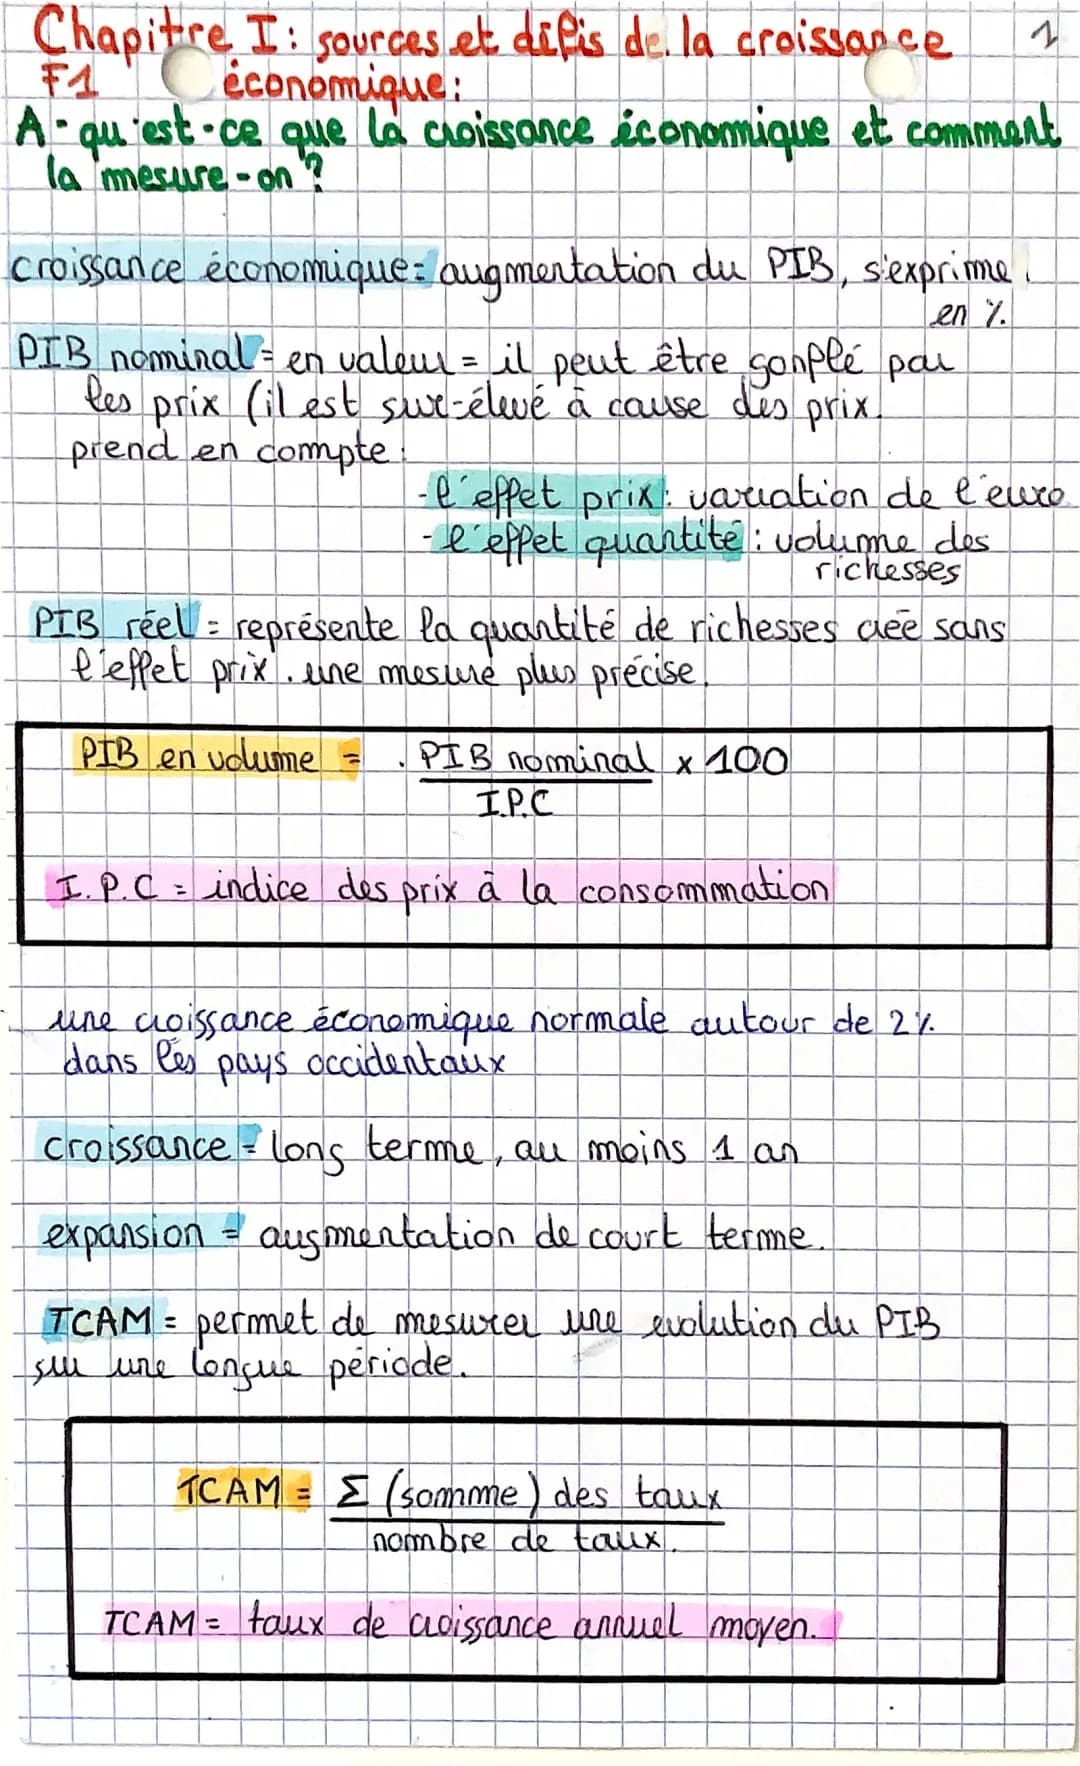 Chapitre I : sources et défis de la croissance 1
F1 économique :
A - qu'est-ce que la croissance économique et comment
la mesure-on ?
croissance économique = augmentation du PIB, s'exprime
en %.
PIB nominal = en valeur = il peut être gonflé par
les prix (il est sur-élevé à cause des prix.
prend en compte :
- l'effet prix : variation de l'euro
- l'effet quantité : volume des
richesses
PIB réel = représente la quantité de richesses créé sans
l'effet prix. une mesure plus précise.
PIB en volume = PIB nominal x 100
I.P.C
I.P.C = indice des prix à la consommation
une croissance économique normale autour de 2%
dans les pays occidentaux
croissance = long terme, au moins 1 an
expansion = augmentation de court terme.
TCAM = permet de mesurer une evolution du PIB
sur une longue période.
TCAM = Σ (somme) des taux
nombre de taux.
TCAM = taux de croissance annuel moyen.